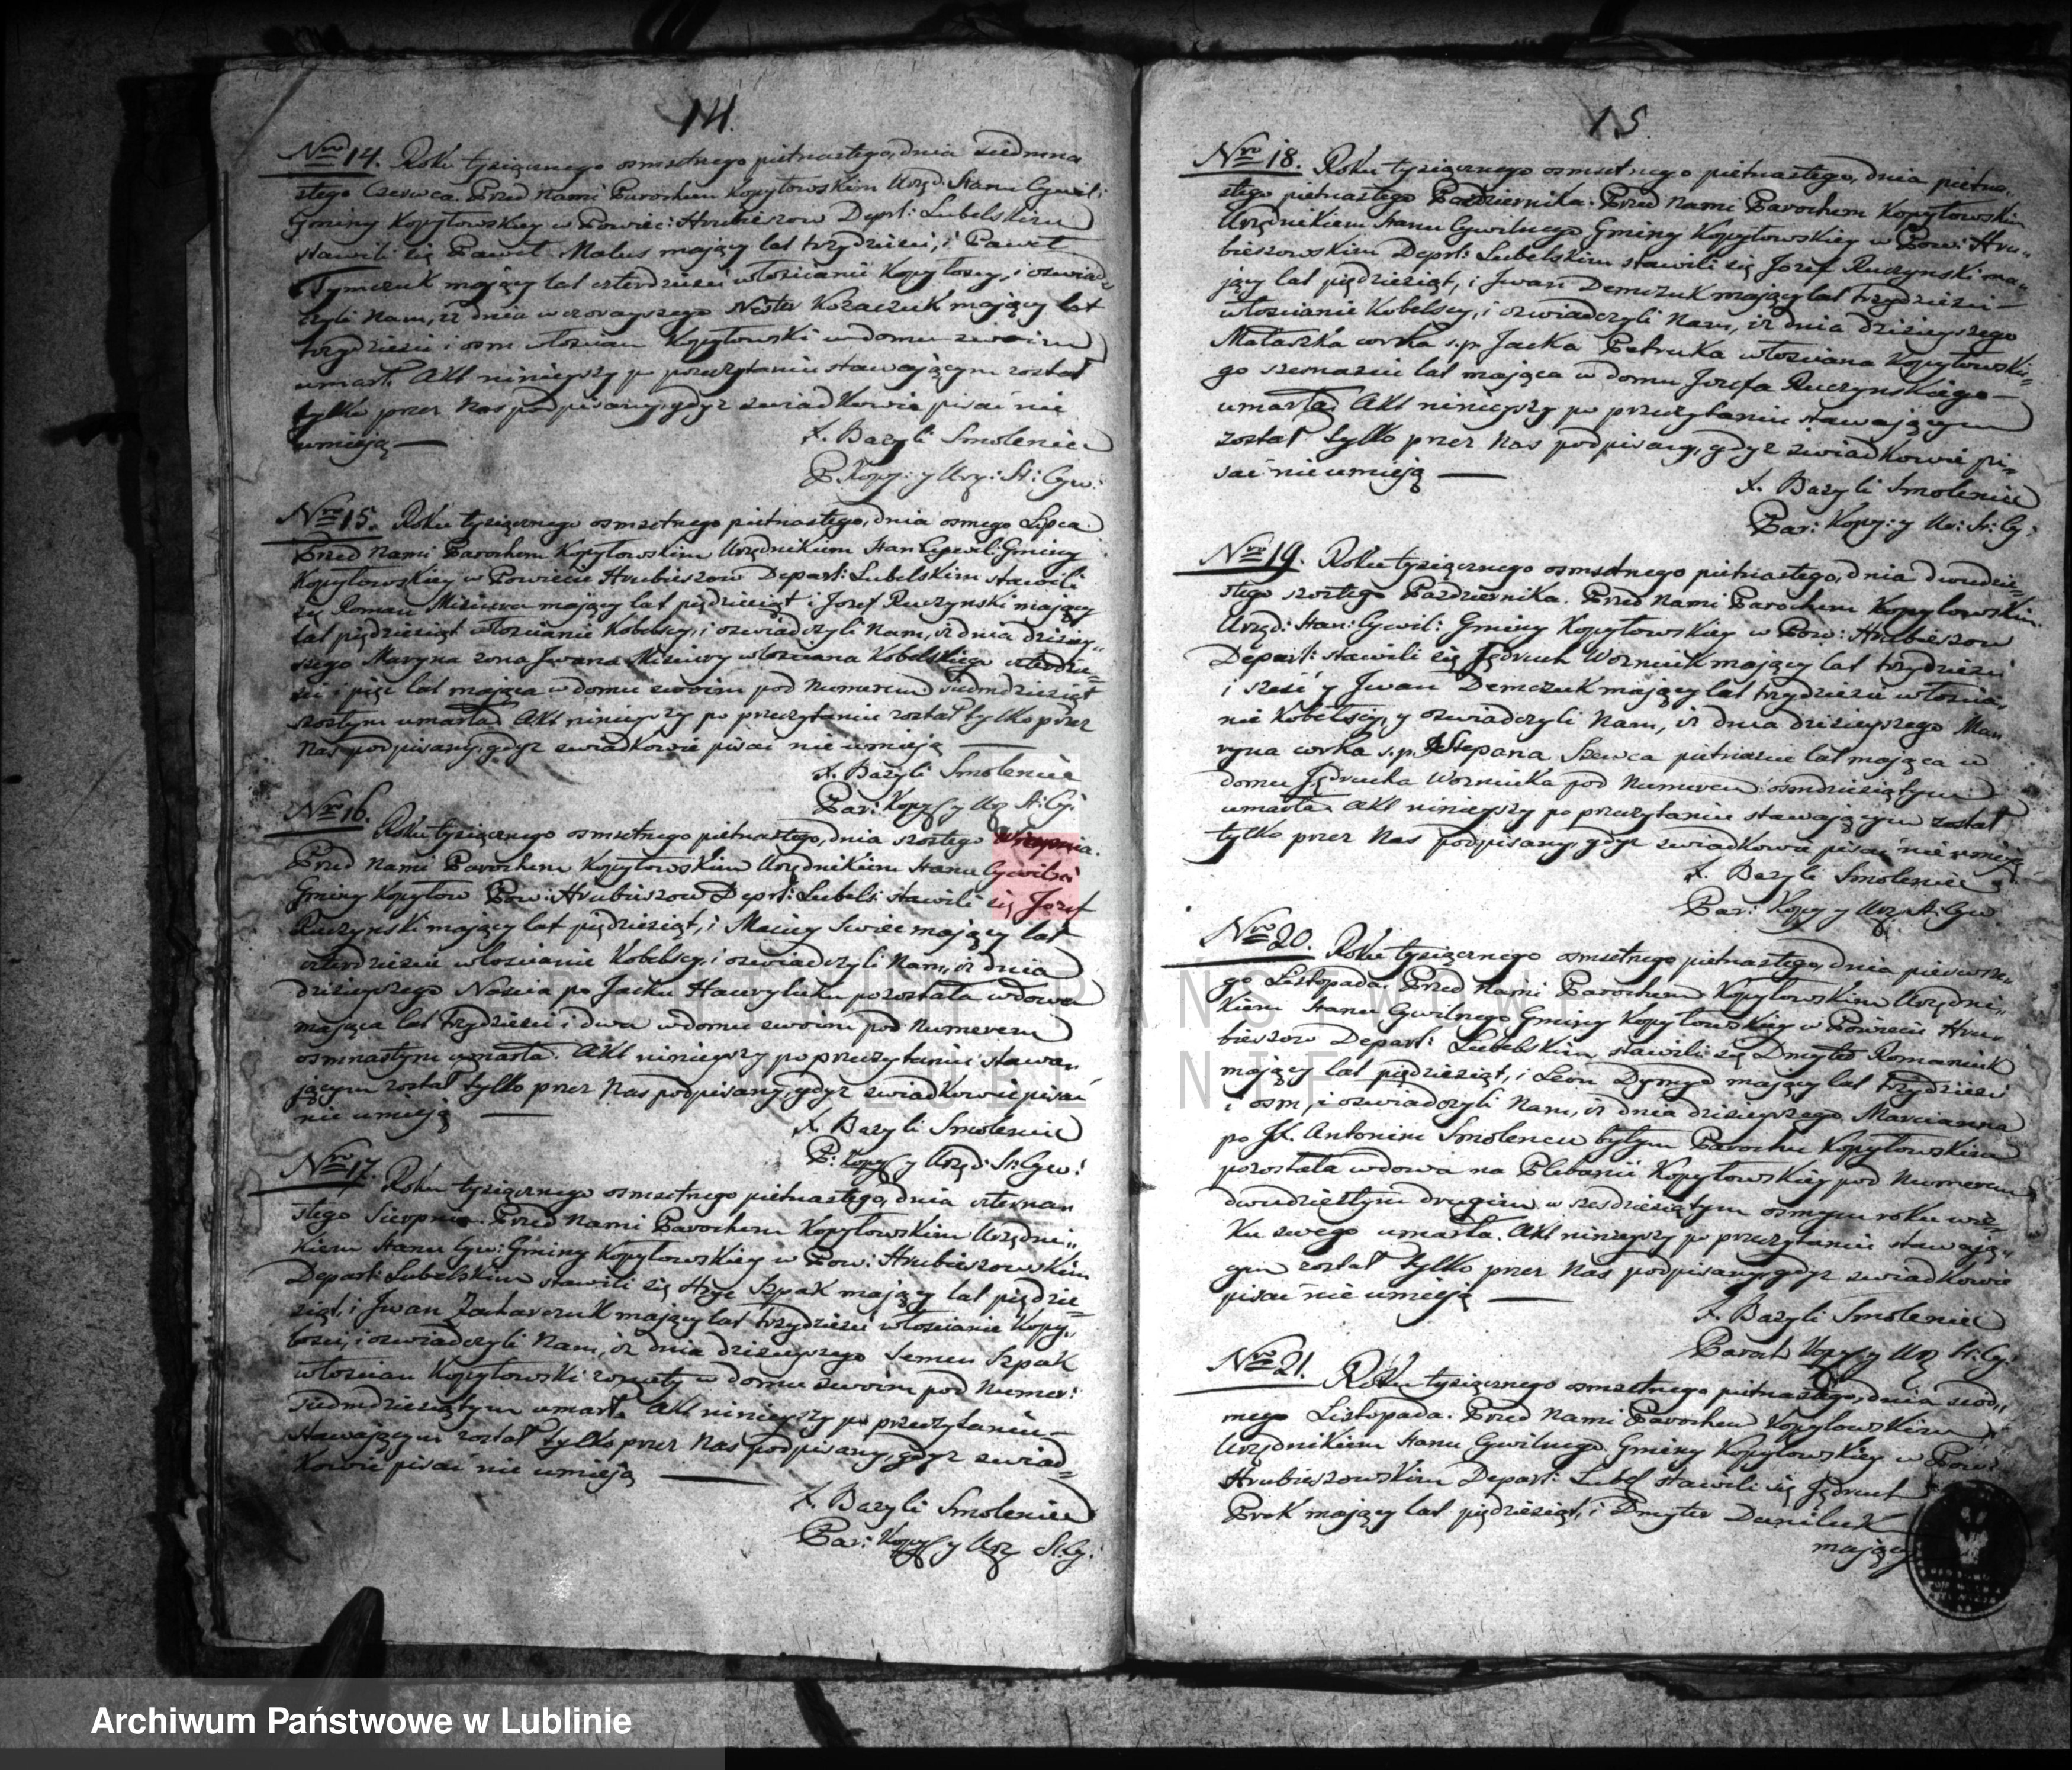 14.
Nro 14. Roku tysiącznego osmsetnego piętnastego, dnia siedmna
stego Czerwca. Przed Nami Parochem Kopyłowskim Urzęd: Stanu Cywil:
Gminy Kopyłowskiey w Powiec: Hrubieszow Depart: Lubelskim
stawili się Paweł Malus maiący lat trzydzieści, i Paweł
Tymczuk maiący lat czterdzieści włościanie Kopyłowscy, i oswiad=
czyli Nam, iż dnia wczorayszego Nester Kozaczuk maiący lat
trzydzieści i osm włościan Kopyłowski w domu swoim
umarł. Akt ninieyszy po przeczytaniu stawaiącym został
tylko przez Nas podpisany, gdyż swiadkowie pisać nie
umieją —
X. Bazyli Smoleniec
P. Kopy: y Urzę: St: Cyw:
Nro 15. Roku tysiącznego osmsetnego piętnastego, dnia osmego Lipca.
Przed Nami Parochem Kopyłowskim Urzędnikiem Stan Cywil: Gminy
Kopyłowskiey w Powiecie Hrubieszow Depart: Lubelskim stawili
się Roman Misiura maiący lat pięдziesiąt i Jozef Ruczynski maiący
lat pięćdziesiąt włościanie Kobelscy, i oswiadczyli Nam, iż dnia dzisiey„
szego Maryna zona Jwana Misiury włościana Kobelskiego czterdzie=
sci i pięć lat maiąca w domu swoim pod Numerem siedmdziesiąt
szostym umarła. Akt ninieyszy po przeczytaniu został tylko przez
Nas podpisany, gdyż swiadkowie pisać nie umieją —
X. Bazyli Smoleniec
Par: Kopy: y Urz St: Cy:
Nro 16. Roku tysiącznego osmsetnego piętnastego, dnia szostego Wrzesnia.
Przed Nami Parochem Kopyłowskim Urzędnikiem Stanu Cywilnei
Gminy Kopyłow Pow: Hrubieszow Depart: Lubels: stawili się Jozef
Ruczynski maiący lat pięдziesiąt, i Maciey Swiec maiący lat
czterdziescie włościanie Kobelscy, i oswiadczyli Nam, iż dnia
dzisieyszego Nascia po Jacku Hawryluku pozostała wdowa
maiąca lat trzydziesci i dwa w domu swoim pod Numerem
osmnastym umarła. Akt ninieyszy po przeczytaniu stawa„
jącym został tylko przez Nas podpisany, gdyż swiadkowie pisać
nie umieją —
X. Bazyli Smoleniec
P: Kopy: y Urzęd: St: Cyw:
Nro 17. Roku tysiącznego osmsetnego piętnastego, dnia czterna„
stego Sierpnia. Przed Nami Parochem Kopyłowskim Urzędni„
kiem Stanu Cyw: Gminy Kopyłowskiey w Pow: Hrubieszowskim
Depart: Lubelskim stawili się Hryc Szpak maiący lat pięдzie=
siąt, i Jwan Zacharczuk maiący lat trzydziesci włościanie Kopy„
łosci, i oswiadczyli Nam, iż dnia dzisieyszego Semen Szpak
włościan Kopyłowski zonaty w domu swoim pod Numer:
siedmdziesiątym umarł. Akt ninieyszy po przeczytaniu —
stawaiącym został tylko przez Nas podpisany, gdyż swiad=
kowie pisać nie umieją —
X. Bazyli Smoleniec
Par: Kopy: y Urz St: Cy:
15.
Nro 18. Roku tysiącznego osmsetnego piętnastego, dnia piętna„
stego piętnastego Pazdziernika. Przed Nami Parochem Kopyłowskim
Urzędnikiem Stanu Cywilnego Gminy Kopyłowskiey w Pow: Hru„
bieszowskim Depart: Lubelskim stawili się Jozef Ruczynski ma„
jący lat pięдziesiąt, i Jwan Demczuk maiący lat trzydziesci —
włościanie Kobelscy, i oswiadczyli Nam, iż dnia dzisieyszego
Mataszka corka s.p. Jacka Petruka włościana Kopyłowskie=
go szesnascie lat maiąca w domu Jozefa Ruczynskiego —
umarła. Akt ninieyszy po przeczytaniu stawaiącym
został tylko przez Nas podpisany, gdyż swiadkowie pi„
sać nie umieją —
X. Bazyli Smoleniec
Par: Kopy: y Ur: St: Cy:
Nro 19. Roku tysiącznego osmsetnego piętnastego, dnia dwudzie=
stego szostego Pazdziernika. Przed Nami Parochem Kopyłowskim
Urzęd: Stan: Cywil: Gminy Kopyłowskiey w Pow: Hrubieszow
Depart: stawili się Jędruch Wozniuk maiący lat trzydziesci
i szesc y Jwan Demczuk maiący lat trzydziesci włościa„
nie Kobelscy, y oswiadczyli Nam, iż dnia dzisieyszego Ma„
ryna corka s.p. Stepana Szewca piętnascie lat maiąca w
domu Jędrucha Wozniuka pod Numerem osmdziesiątym
umarła. Akt ninieyszy po przeczytaniu stawaiącym został
tylko przez Nas podpisany, gdyż swiadkowie pisać nie umieją
X. Bazyli Smoleniec
Par: Kopy y Urz St: Cyw
Nro 20. Roku tysiącznego osmsetnego piętnastego, dnia pierwsze„
go Listopada. Przed Nami Parochem Kopyłowskim Urzędni„
kiem Stanu Cywilnego Gminy Kopyłowskiey w Powiecie Hru„
bieszow Depart: Lubelskim stawili się Dmyter Romaniuk
maiący lat pięдziesiąt, i Leon Dymyd maiący lat trzydziesci
i osm, i oswiadczyli Nam, iż dnia dzisieyszego Marcianna
po JX. Antonim Smolencu byłym Parochu Kopyłowskim
pozostała wdowa na Plebanii Kopyłowskiey pod Numerem
dwudziestym drugim w szesdziesiątym osmym roku wie=
ku swego umarła. Akt ninieyszy po przeczytaniu stawaią„
cym został tylko przez Nas podpisany, gdyż swiadkowie
pisać nie umieją —
X. Bazyli Smoleniec
Paroch Kopy: y Urz St: Cy:
Nro 21. Roku tysiącznego osmsetnego piętnastego, dnia siod„
mego Listopada. Przed Nami Parochem Kopyłowskim
Urzędnikiem Stanu Cywilnego Gminy Kopyłowskiey w Pow:
Hrubieszowskim Depart: Lubel stawili się Jędruch
Prok maiący lat pięдziesiąt, i Dmyter Daniluk
maiący
Archiwum Państwowe w Lublinie